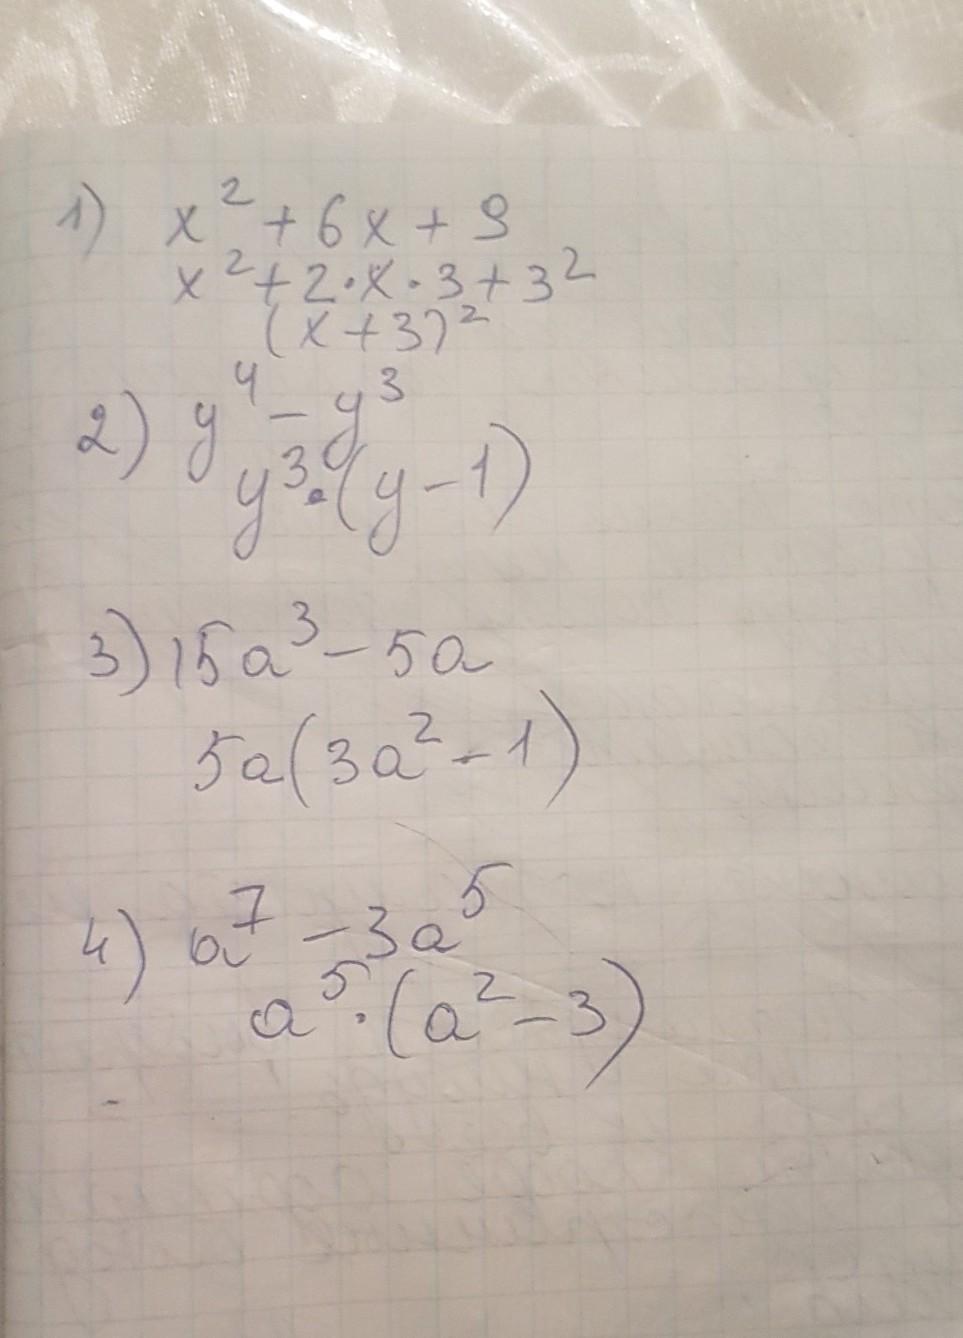 1) x² + 6x + 9
x² + 2·x·3 + 3²
(x + 3)²
2) y⁴ - y³
y³·(y - 1)
3) 15a³ - 5a
5a(3a² - 1)
4) a⁷ - 3a⁵
a⁵·(a² - 3)